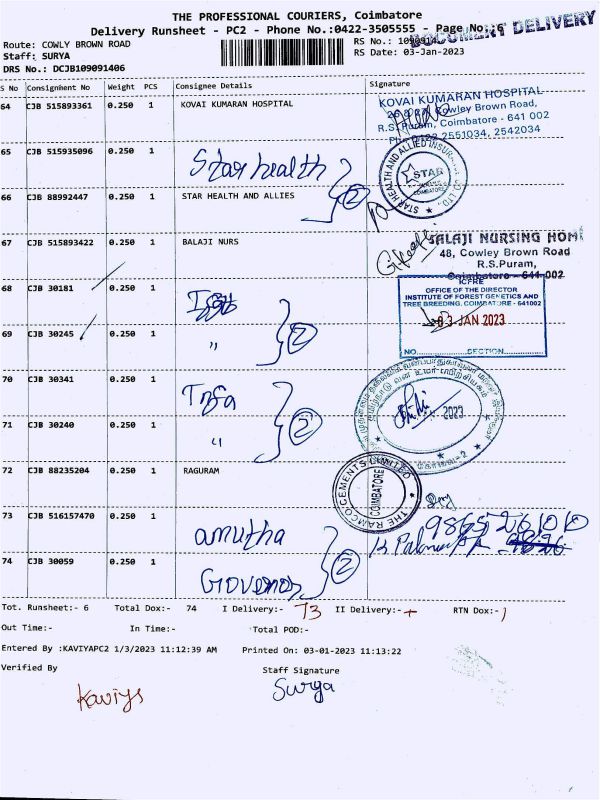 THE PROFESSIONAL COURIERS, Coimbatore
Delivery Runsheet - PC2 - Phone No.:0422-3505555 - Page No.:6
DOCUMENT DELIVERY
Route: COWLY BROWN ROAD
Staff: SURYA
RS Date: 03-Jan-2023
DRS No.: DCJB109091406
S No Consignment No Weight PCS Consignee Details Signature
64 CJB 515893361 0.250 1 KOVAI KUMARAN HOSPITAL
KOVAI KUMARAN HOSPITAL
Cowley Brown Road,
R.S.Puram, Coimbatore - 641 002
2551034, 2542034
65 CJB 515935096 0.250 1 Star health
STAR HEALTH AND ALLIED INSURANCE CO LTD., STAR COIMBATORE
66 CJB 88992447 0.250 1 STAR HEALTH AND ALLIES
2
67 CJB 515893422 0.250 1 BALAJI NURS
BALAJI NURSING HOME
48, Cowley Brown Road
R.S.Puram,
Coimbatore - 641 002
68 CJB 30181 0.250 1
ICFRE
OFFICE OF THE DIRECTOR
INSTITUTE OF FOREST GENETICS AND
TREE BREEDING, COIMBATORE - 641002
03 JAN 2023
NO. SECTION
69 CJB 30245 0.250 1 "
2
70 CJB 30341 0.250 1
2023
கோவை-2
71 CJB 30240 0.250 1 "
2
72 CJB 88235204 0.250 1 RAGURAM
THE RAMCO CEMENTS LIMITED COIMBATORE
73 CJB 516157470 0.250 1 amutha
74 CJB 30059 0.250 1 Governor
2
Tot. Runsheet:- 6 Total Dox:- 74 I Delivery:- 73 II Delivery:- RTN Dox:- 1
Out Time:- In Time:- Total POD:-
Entered By :KAVIYAPC2 1/3/2023 11:12:39 AM Printed On: 03-01-2023 11:13:22
Verified By Staff Signature
Kaviys Surya